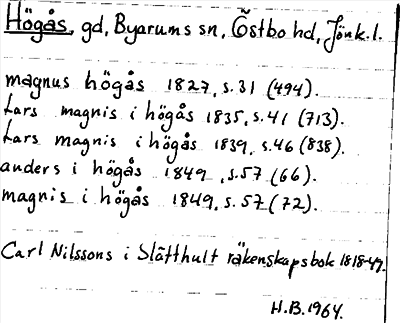 Högås, gd, Byarums sn, Östbo hd, Jönk.l.
magnus högås 1827, s.31 (494).
Lars magnis i högås 1835, s.41 (713).
Lars magnis i högås 1839, s.46 (838).
anders i högås 1849, s.57 (66).
magnis i högås 1849, s.57 (72).
Carl Nilssons i Slätthult räkenskapsbok 1818-47.
H.B. 1964.